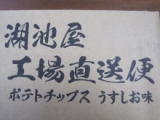 湖池屋
工場直送便
ポテトチップス うすしお味